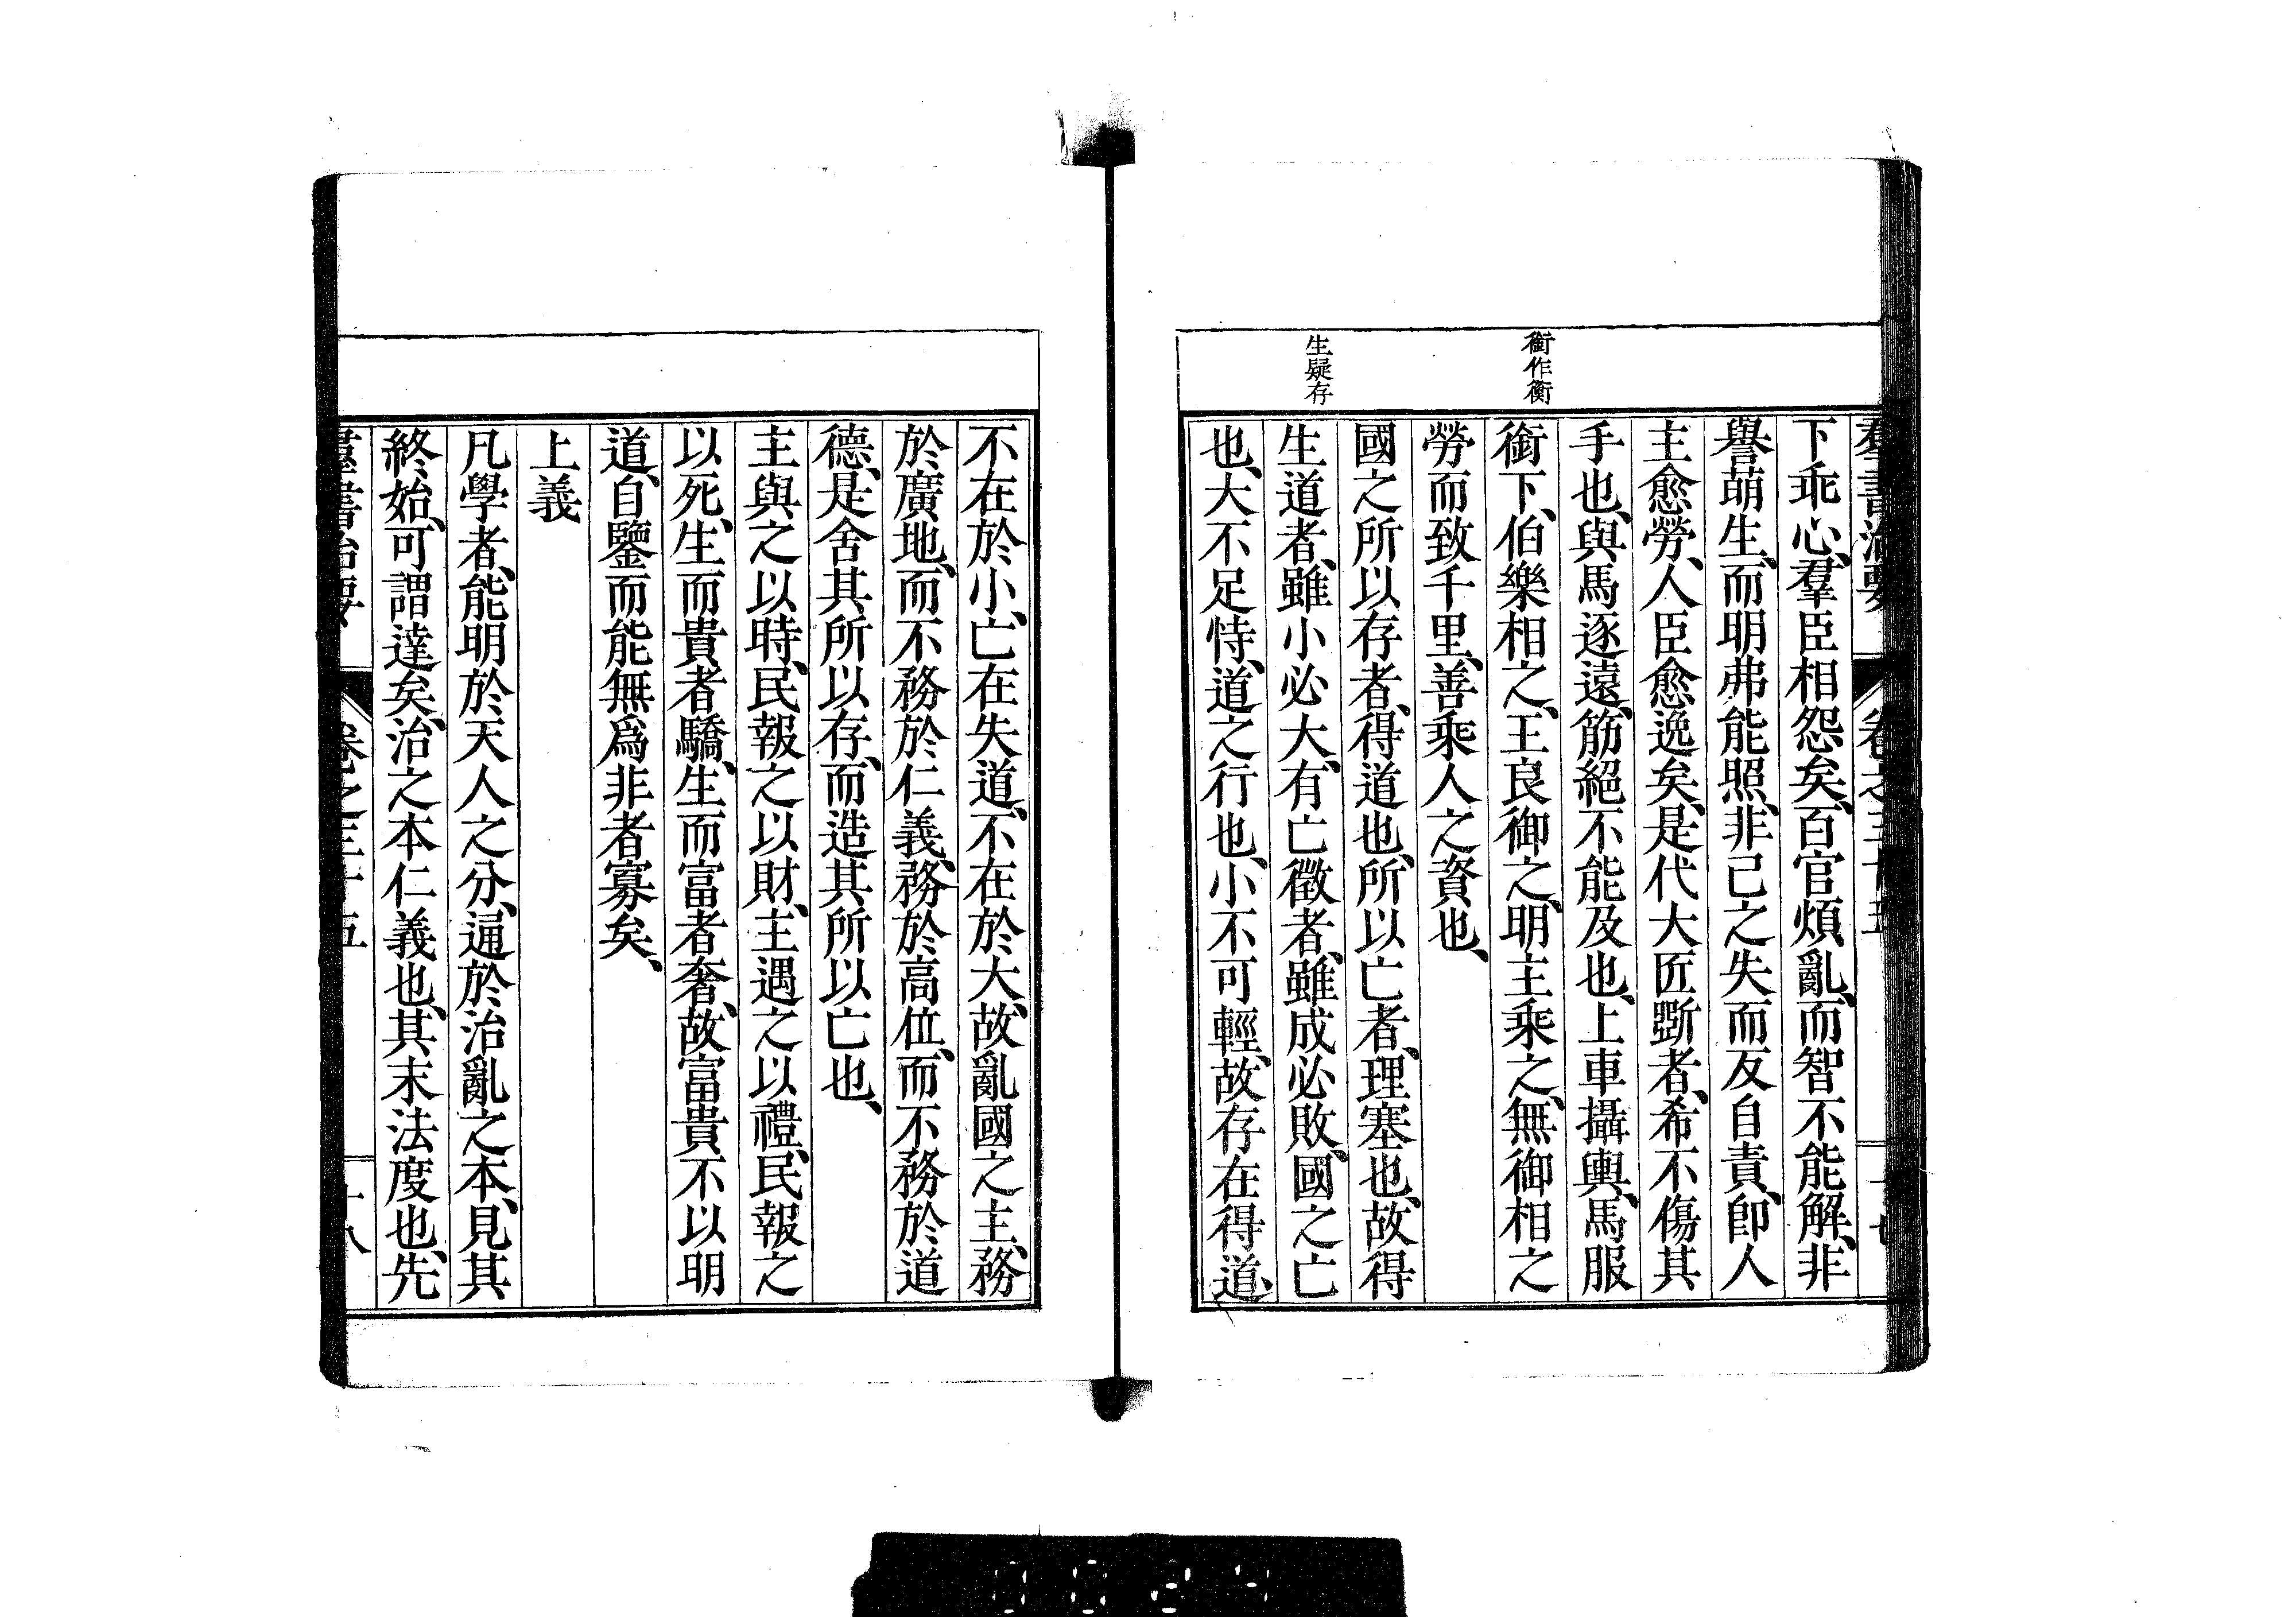 羣書治要 卷之三十五 十七
銜作衡
生疑存
下乖心、羣臣相怨矣、百官煩亂、而智不能解、非
譽萌生、而明弗能照、非己之失而反自責、卽人
主愈勞、人臣愈逸矣、是代大匠斲者、希不傷其
手也、與馬逐遠、筋絕不能及也、上車攝輿、馬服
銜下、伯樂相之、王良御之、明主乘之、無御相之
勞而致千里、善乘人之資也、
國之所以存者、得道也、所以亡者、理塞也、故得
生道者、雖小必大、有亡徵者、雖成必敗、國之亡
也、大不足恃、道之行也、小不可輕、故存在得道、
不在於小、亡在失道、不在於大、故亂國之主、務
於廣地、而不務於仁義、務於高位、而不務於道
德、是舍其所以存、而造其所以亡也、
主與之以時、民報之以財、主遇之以禮、民報之
以死、生而貴者驕、生而富者奢、故富貴不以明
道、自鑒而能無爲非者寡矣、
上義
凡學者、能明於天人之分、通於治亂之本、見其
終始、可謂達矣、治之本仁義也、其末法度也、先
羣書治要 卷之三十五 十八